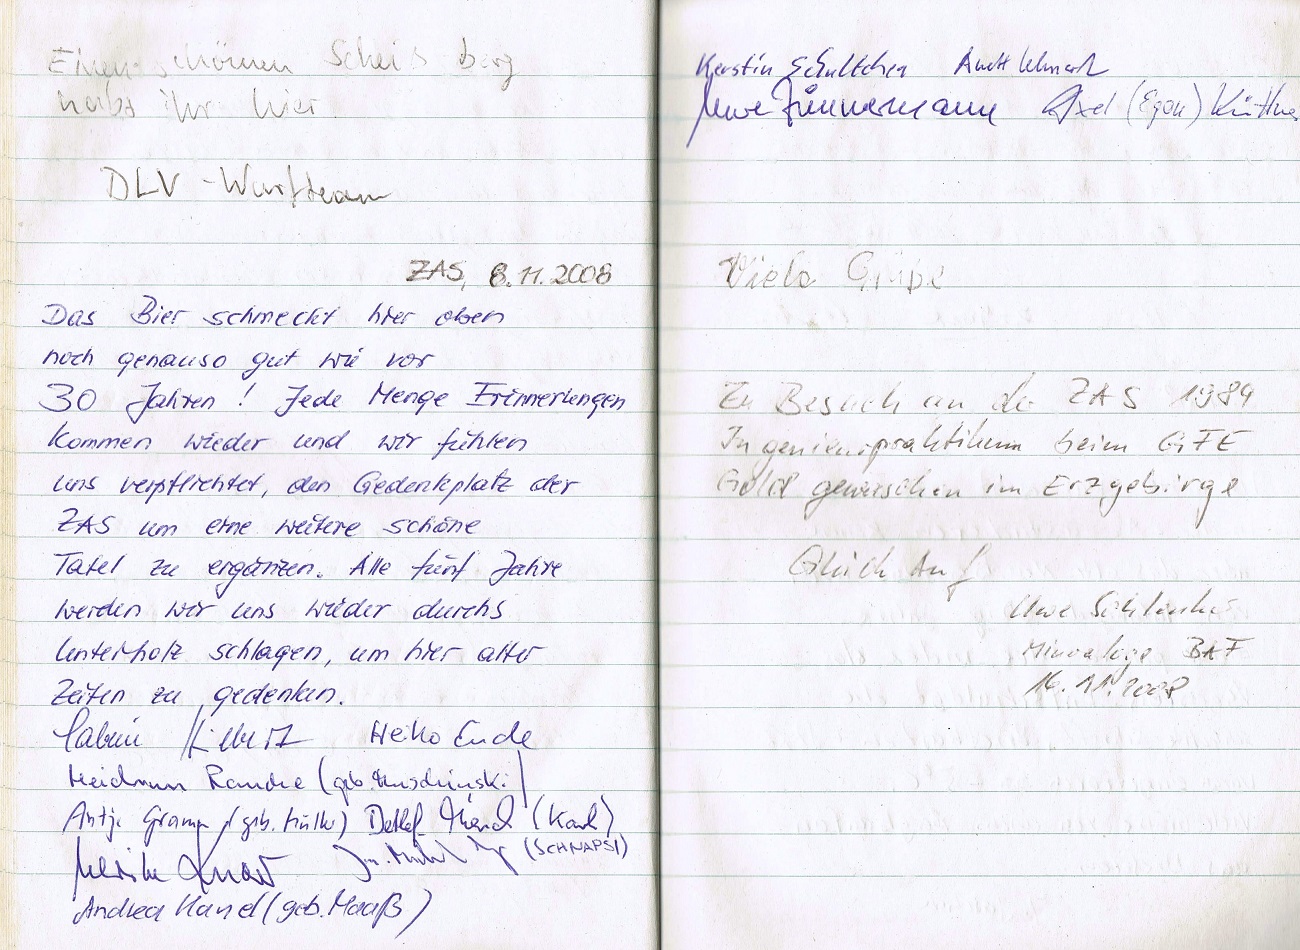 Einen schönen Scheiß berg
habt ihr hier.
DLV - Wurfteam
ZAS, 8.11.2008
Das Bier schmeckt hier oben
noch genauso gut wie vor
30 Jahren! Jede Menge Erinnerungen
kommen wieder und wir fühlen
uns verpflichtet, den Gedenkplatz der
ZAS um eine weitere schöne
Tafel zu ergänzen. Alle fünf Jahre
werden wir uns wieder durchs
Unterholz schlagen, um hier alter
Zeiten zu gedenken.
Sabine Heiko Ende
Heidrun (geb.
Antje (geb. Müller) Detlef (Karl)
(SCHNAPSI)
Andrea (geb. Maaß)
Kerstin
Uwe Zimmermann Axel (Egon)
Viele Grüße
Zu Besuch an de ZAS 1984
Ingenieurpraktikum beim GFE
Gold gewaschen im Erzgebirge
Glück Auf
Uwe
Mineraloge BAF
16.11.2008